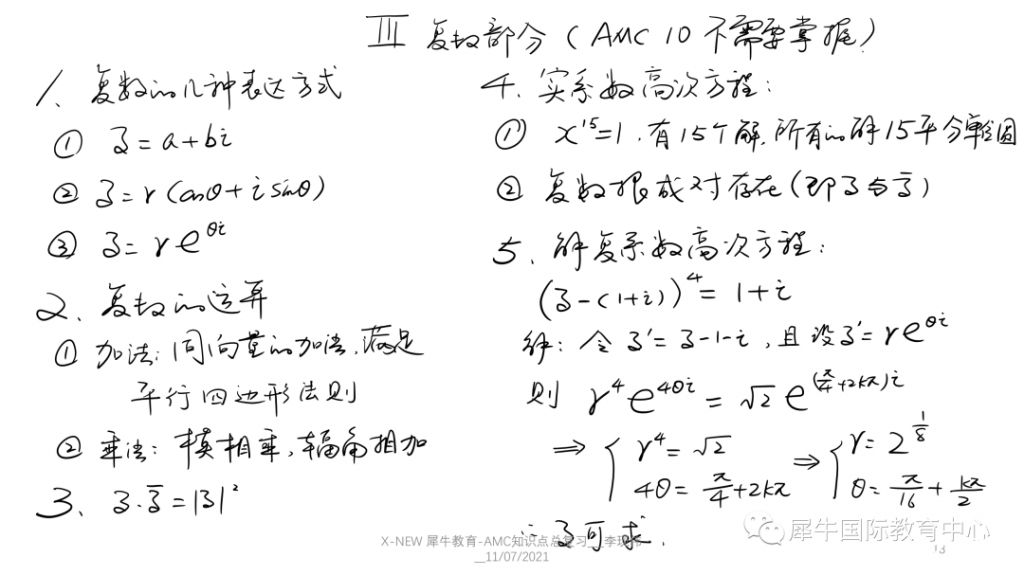 III 复数部分（AMC 10 不需要掌握）
1、复数的几种表达方式
① z = a + bi
② z = r (cosθ + i sinθ)
③ z = re^{θi}
2、复数的运算
① 加法：同向量的加法，满足
平行四边形法则
② 乘法：模相乘，辐角相加
3、z·z̄ = |z|²
4、实系数高次方程：
① x^{15} = 1，有15个解，所有的解15平分单位圆
② 复数根成对存在（即z与z̄）
5、解复系数高次方程：
(z-(1+i))^4 = 1+i
解：令 z' = z-1-i，且设 z' = re^{θi}
则 r^4 e^{4θi} = √2 e^{(π/4+2kπ)i}
⇒ { r^4 = √2 ⇒ { r = 2^{1/8}
4θ = π/4 + 2kπ θ = π/16 + kπ/2
∴ z可求.
X-NEW 犀牛教育-AMC知识点总复习
__11/07/2021
犀牛国际教育中心
13